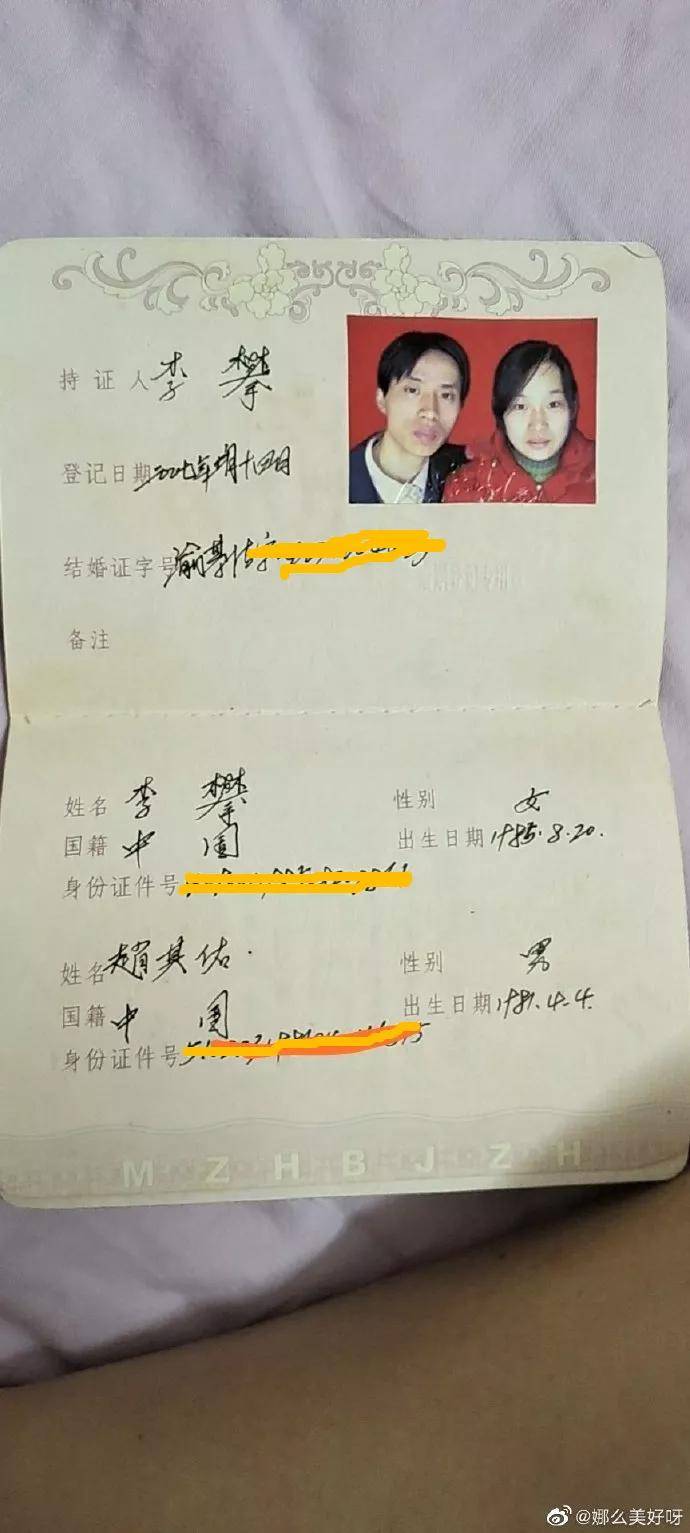 持证人 李攀
登记日期 二〇〇七年二月十四日
结婚证字号 渝綦结字
备注
姓名 李攀 性别 女
国籍 中国 出生日期 1985.8.20.
身份证件号
姓名 趙其佑. 性别 男
国籍 中国 出生日期 1981.4.4.
身份证件号
MZHBJZH
@娜么美好呀